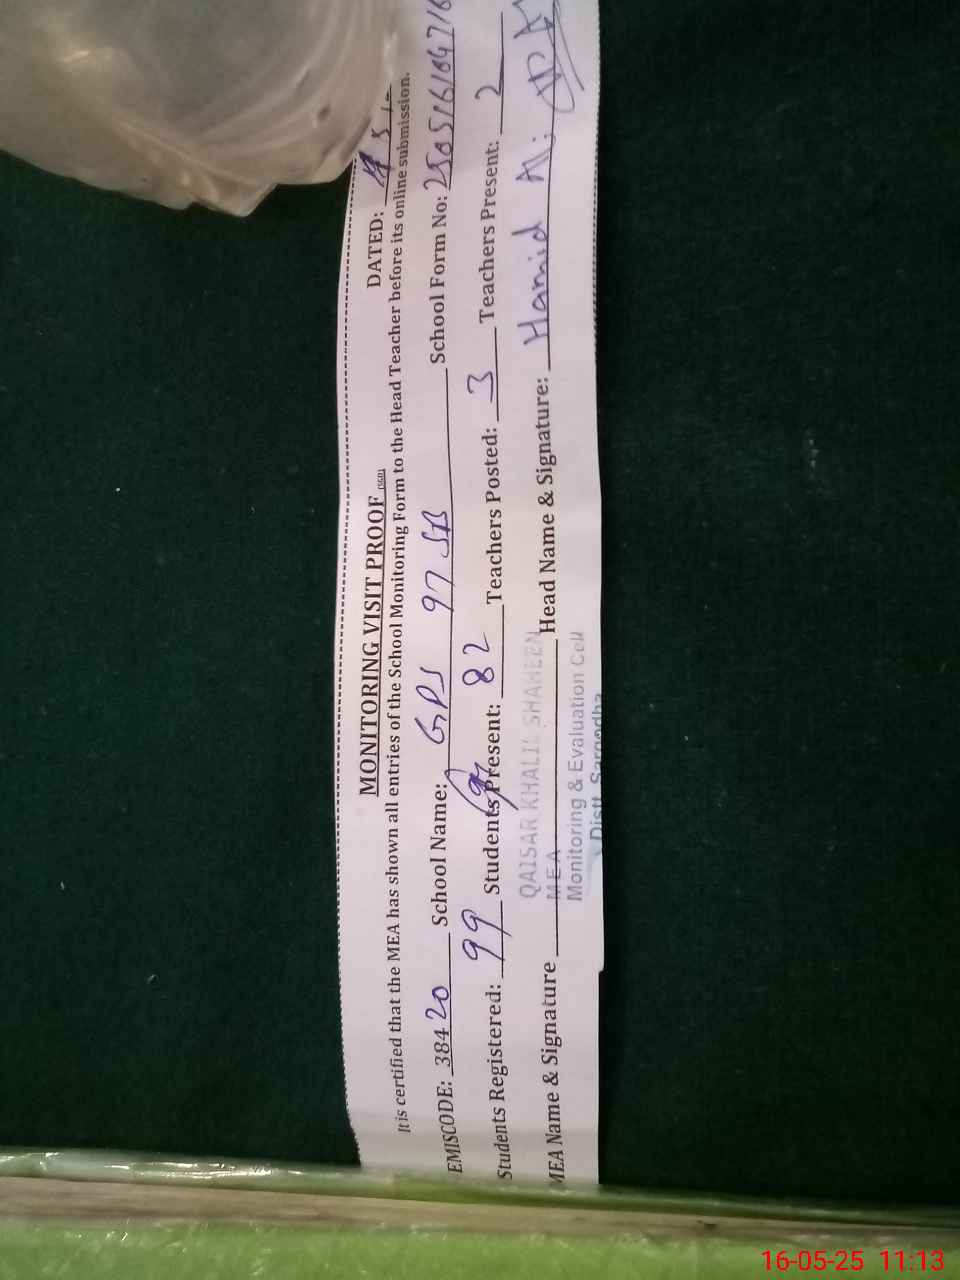 MONITORING VISIT PROOF (SGD) DATED: 5
It is certified that the MEA has shown all entries of the School Monitoring Form to the Head Teacher before its online submission.
EMISCODE: 38420 School Name: GPS 97 SB School Form No:
Students Registered: 99 Students Present: 82 Teachers Posted: 3 Teachers Present: 2
MEA Name & Signature Head Name & Signature: Hamid Ali
QAISAR KHALIL SHAHEEN
MEA
Monitoring & Evaluation Cell
Distt. Sargodha
16-05-25 11:13